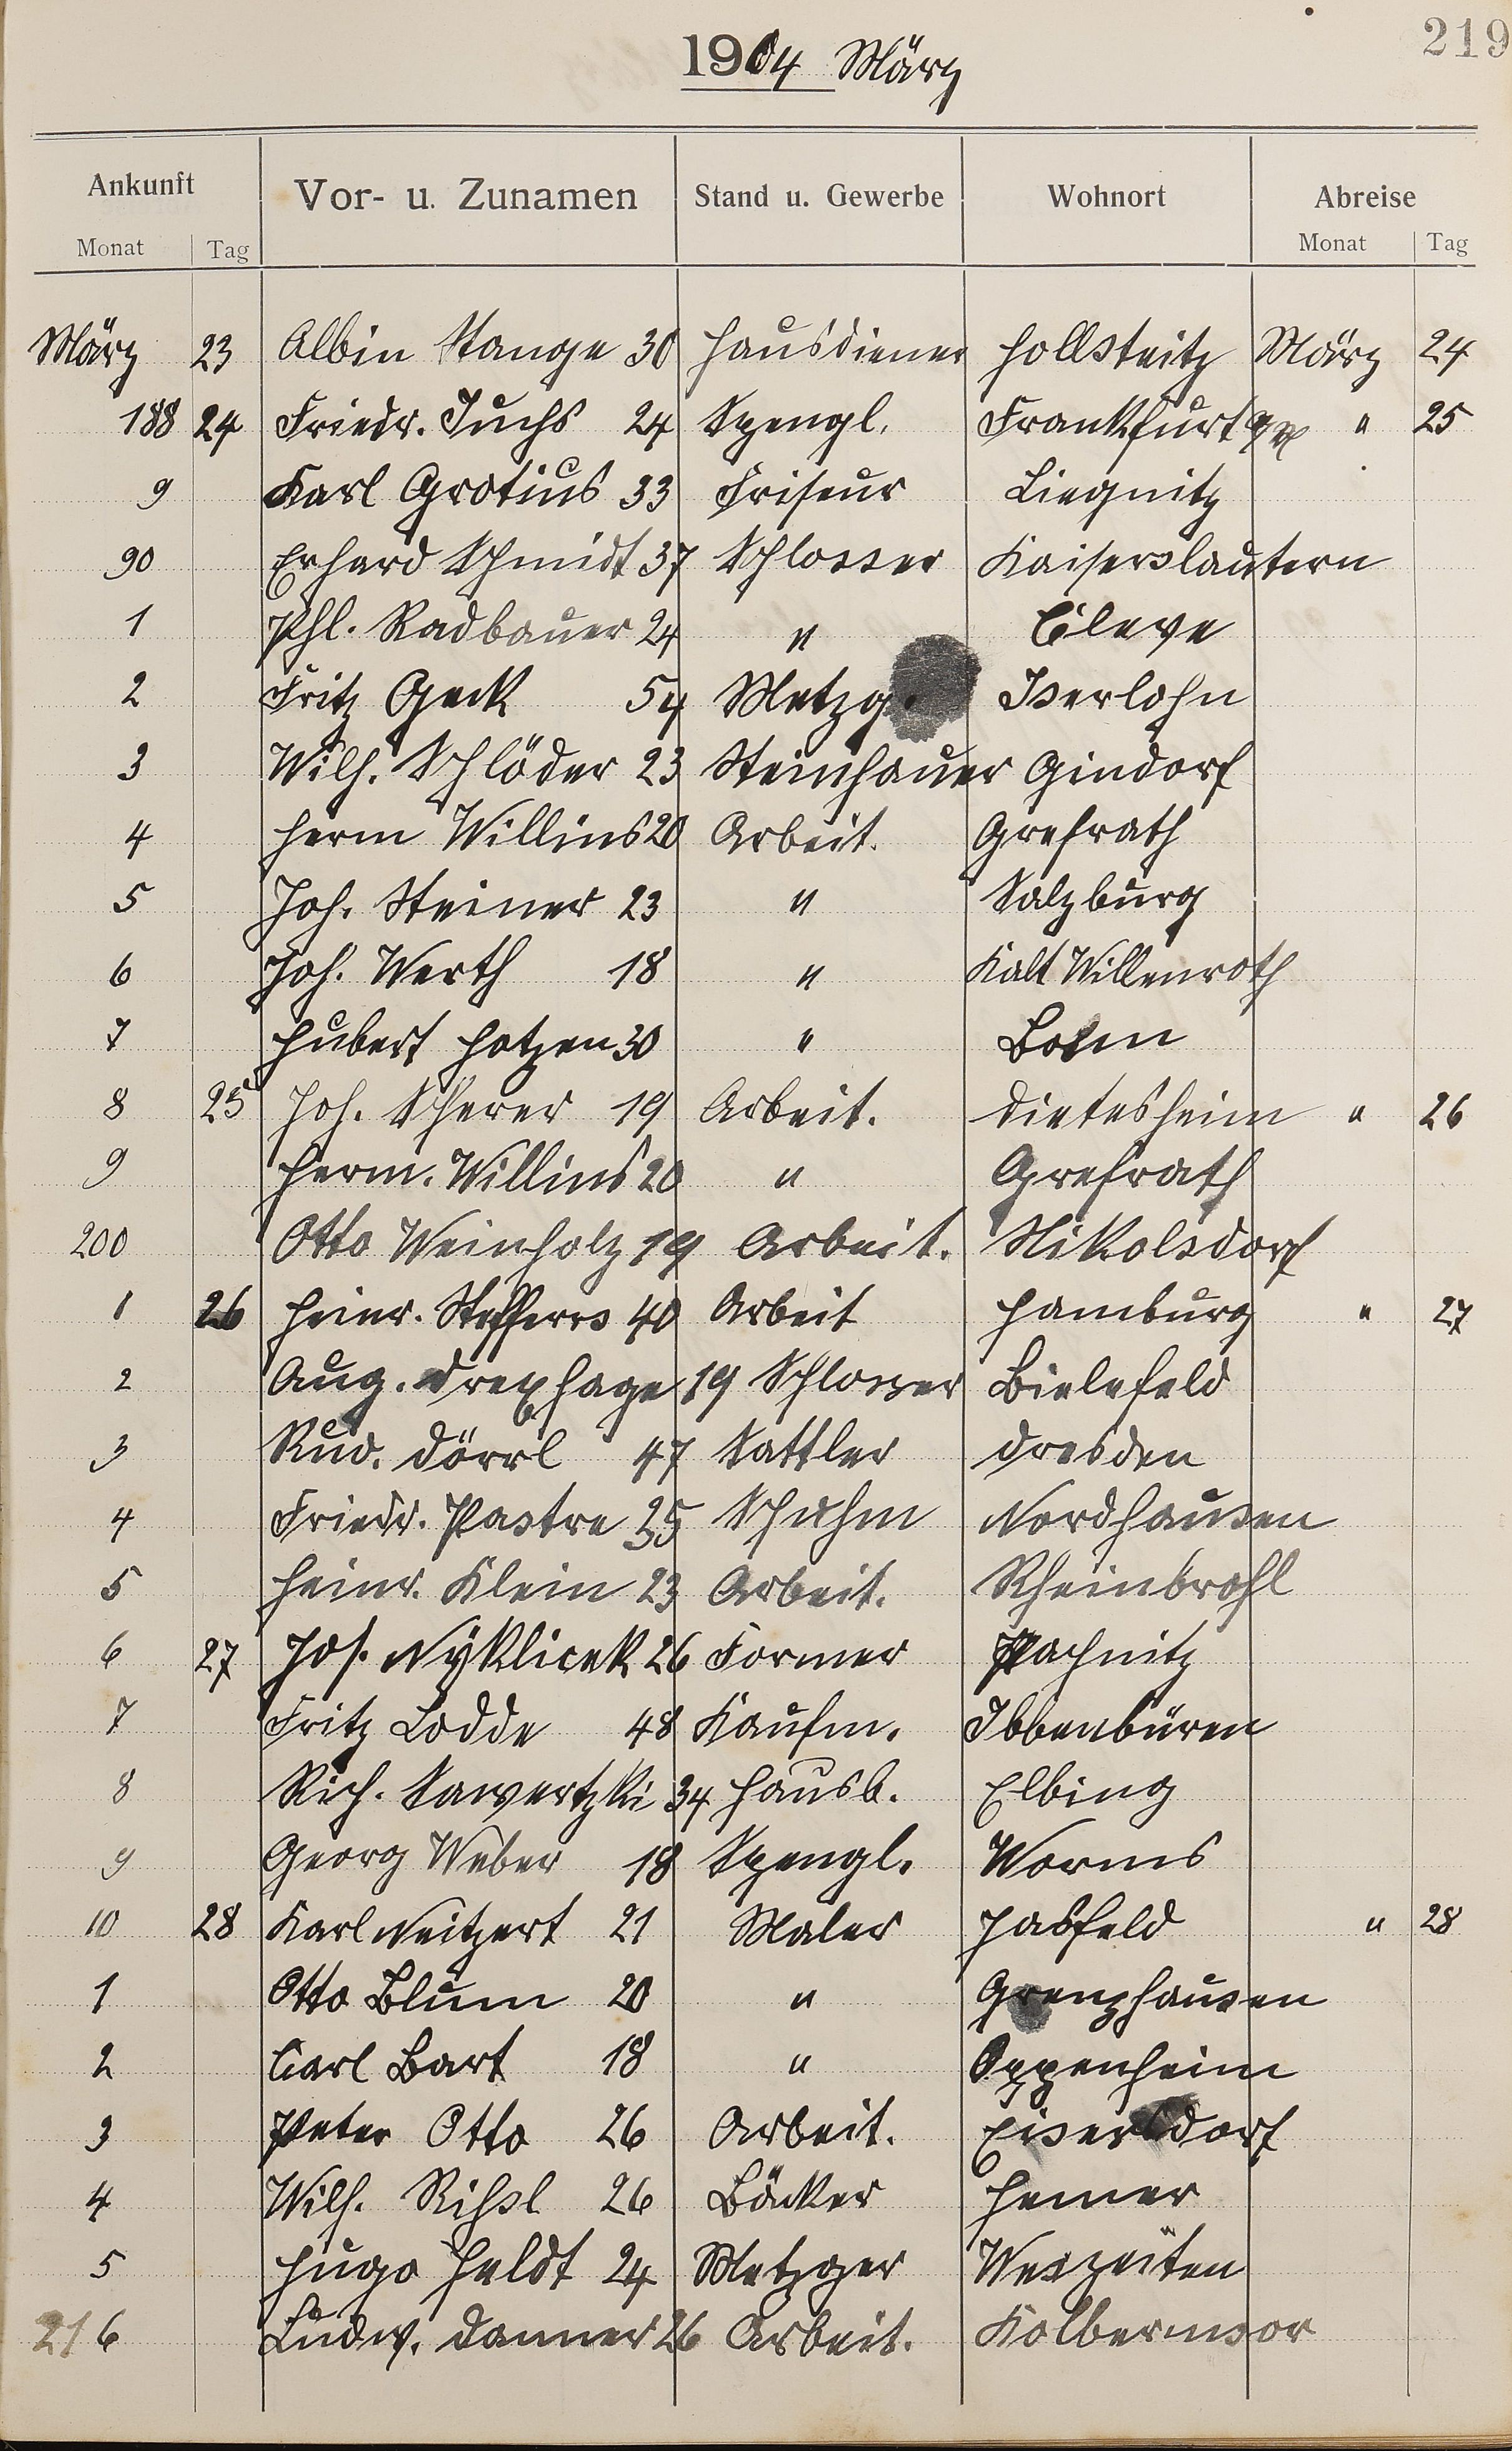 219
1904 März
Ankunft Vor- u. Zunamen Stand u. Gewerbe Wohnort Abreise
Monat Tag Monat Tag
März 23 Albin Stange 30 Hausdiener Hollsteitz März 24
188 24 Friedr. Fuchs 24 Spengl. Frankfurt " 25
9 Karl Grotius 33 Friseur Liegnitz
90 Erhard Schmidt 37 Schlosser Kaiserslautern
1 Phl. Radbauer 24 " Cleve
2 Fritz Geck 54 Metzg. Iserlohn
3 Wilh. Schlöder 23 Steinhauer Gindorf
4 Herm Willins 20 Arbeit. Grefrath
5 Joh. Steiner 23 " Salzburg
6 Joh. Werth 18 " Kalt Willenroth
7 Hubert Hotzen 30 "
8 25 Joh. Scherer 19 Arbeit. Dietesheim " 26
9 Herm. Willins 20 " Grefrath
200 Otto Weinholz 19 Arbeit. Nikolsdorf
1 26 Heinr. Steffens 40 Arbeit Hamburg " 27
2 Aug. Drexhage 19 Schlosser Bielefeld
3 Rud. Dörrl 47 Sattler Dresden
4 Friedr. Pastre 25 Schuhm Nordhausen
5 Heinr. Klein 23 Arbeit. Rheinbrohl
6 27 Jos. Nyklicek 26 Former Pachnitz
7 Fritz Lodde 48 Kaufm. Ibbenbüren
8 Rich. Sawertzki 34 Hausb. Elbing
9 Georg Weber 18 Spengl. Worms
10 28 Karl Neitzert 21 Maler Hasfeld " 28
1 Otto Blum 20 " Grenzhausen
2 Carl Bart 18 " Oppenheim
3 Peter Otto 26 Arbeit. Eisersdorf
4 Wilh. Rihsl 26 Bäcker Hemer
5 Hugo Heldt 24 Metzger Weszeiten
216 Ludw. Danner 26 Arbeit. Kolbermoor